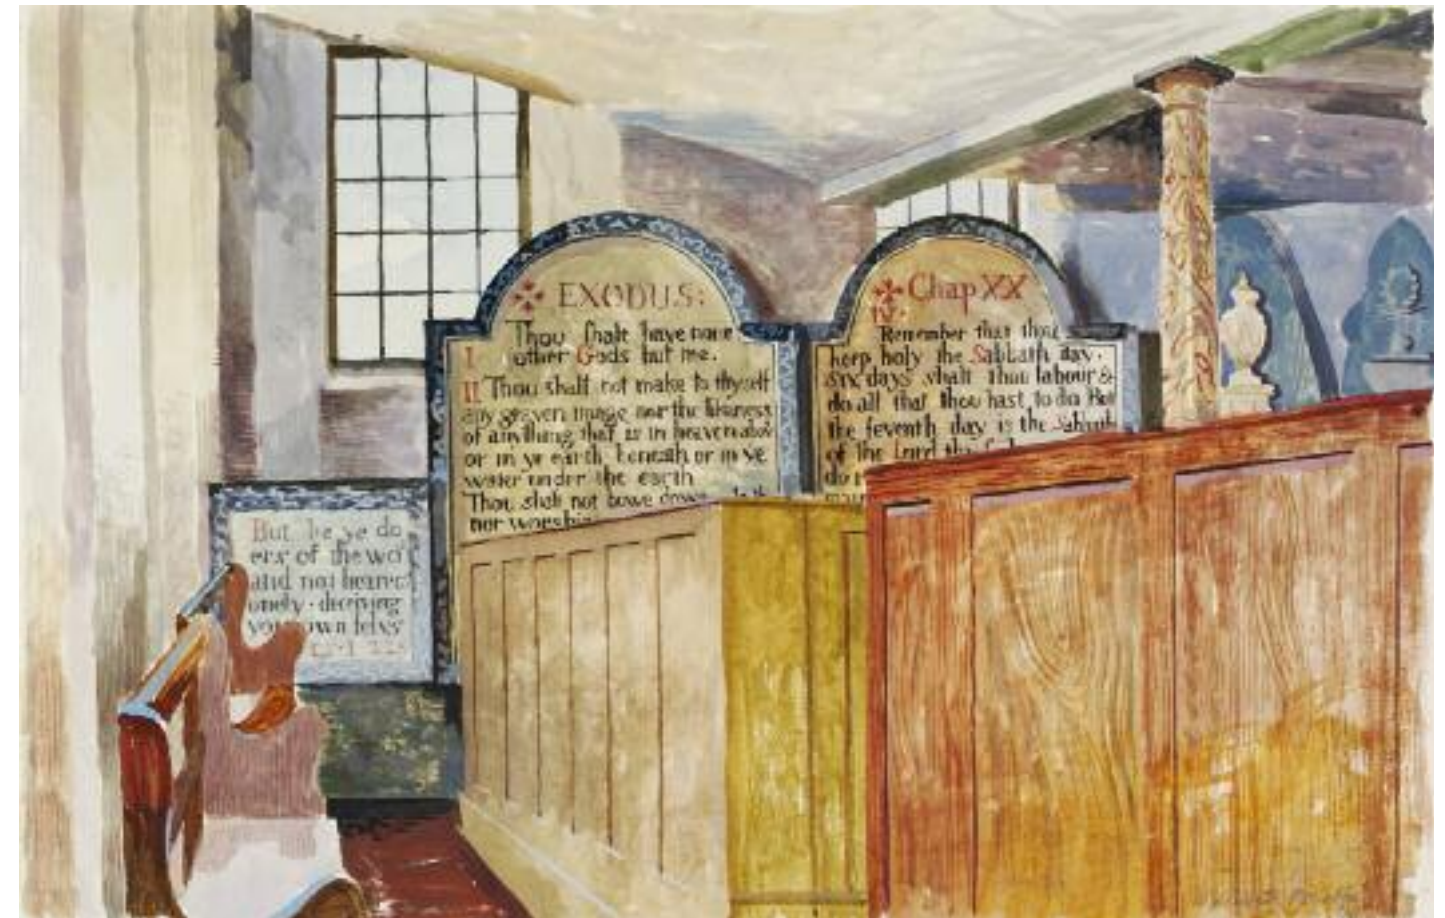 EXODUS:
I Thou shalt have none
other Gods but me.
II Thou shalt not make to thyself
any graven image nor the likeness
of anything that is in heaven above
or in ye earth beneath or in ye
water under the earth
Thou shalt not bowe down
nor worship
Chap XX
IV.
Remember that thou
keep holy the Sabbath day.
six days shalt thou labour &
do all that thou hast to do But
the seventh day is the Sabbath
of the Lord thy
do
But be ye do
ers of the wo
and not hearer
onely. deceiving
your own selvs